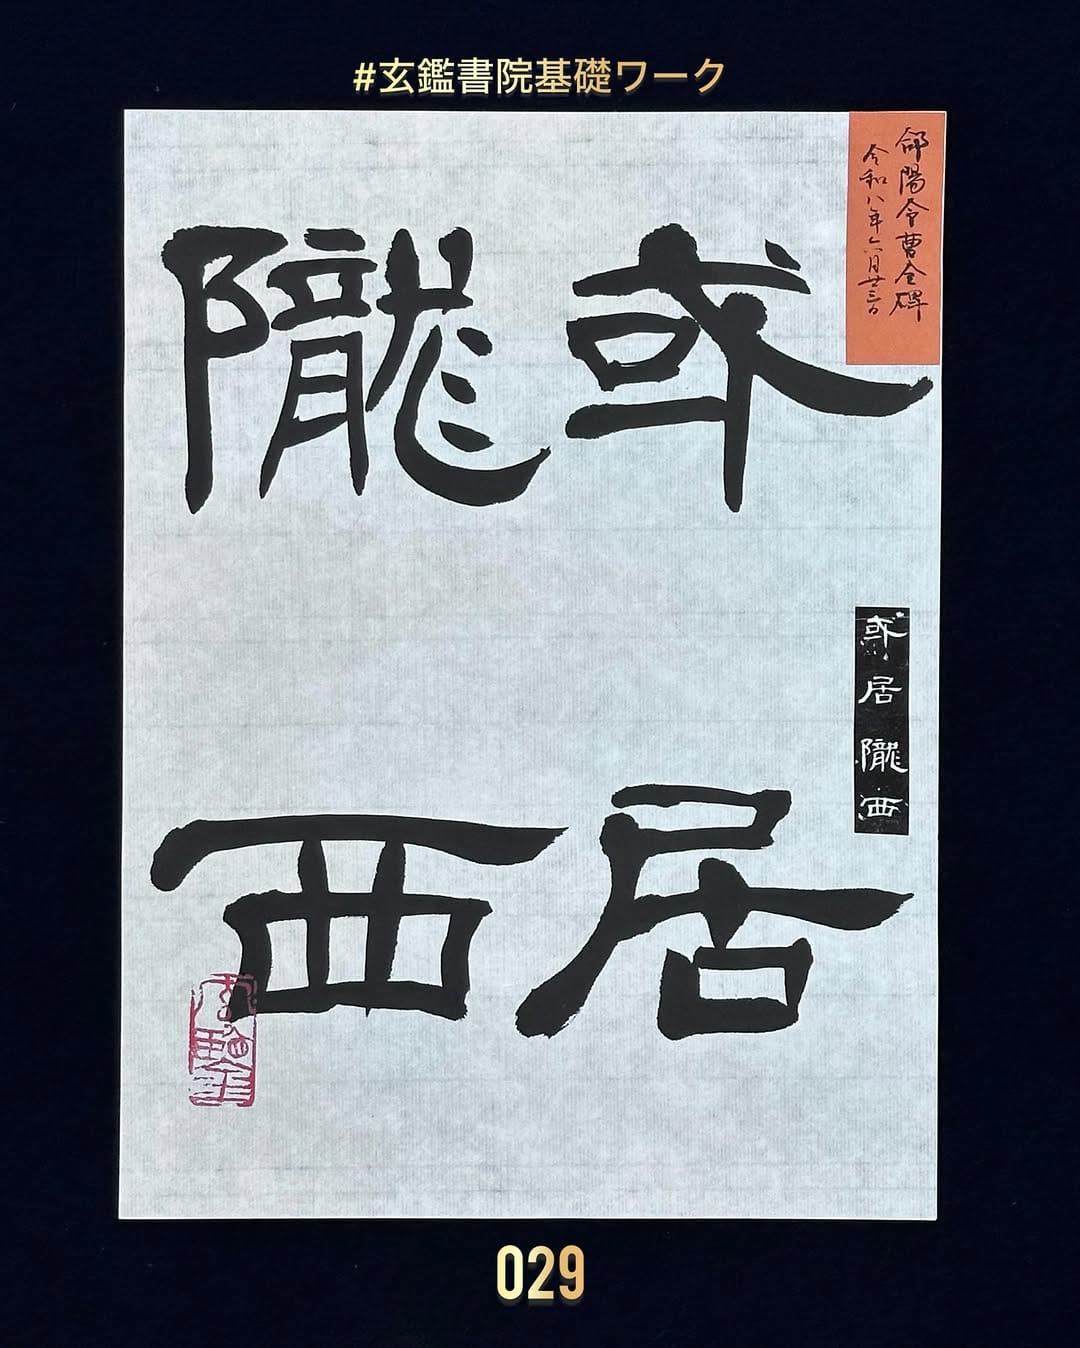 #玄鑑書院基礎ワーク
郃陽令曹全碑
令和八年六月廿三日
或居
隴西
或居隴西
029